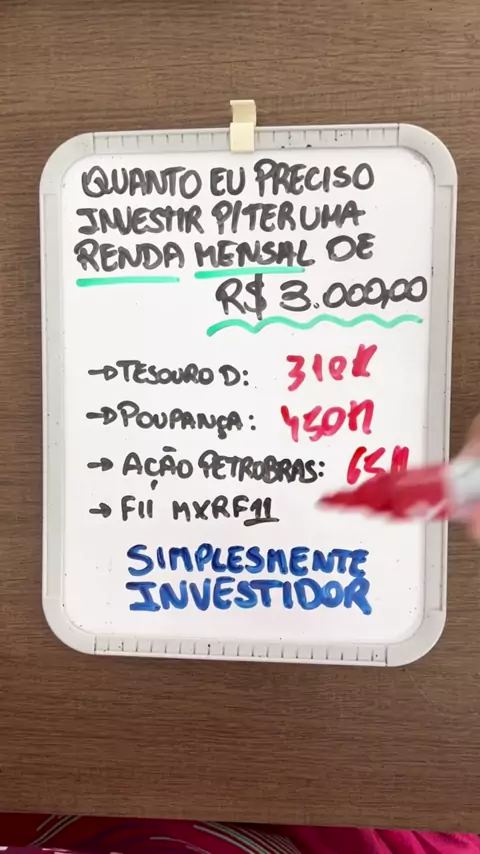 QUANTO EU PRECISO
INVESTIR P/ TER UMA
RENDA MENSAL DE
R$ 3.000,00
→ TESOURO D: 310K
→ POUPANÇA: 450K
→ AÇÃO PETROBRAS: 65K
→ FII MXRF11
SIMPLESMENTE
INVESTIDOR